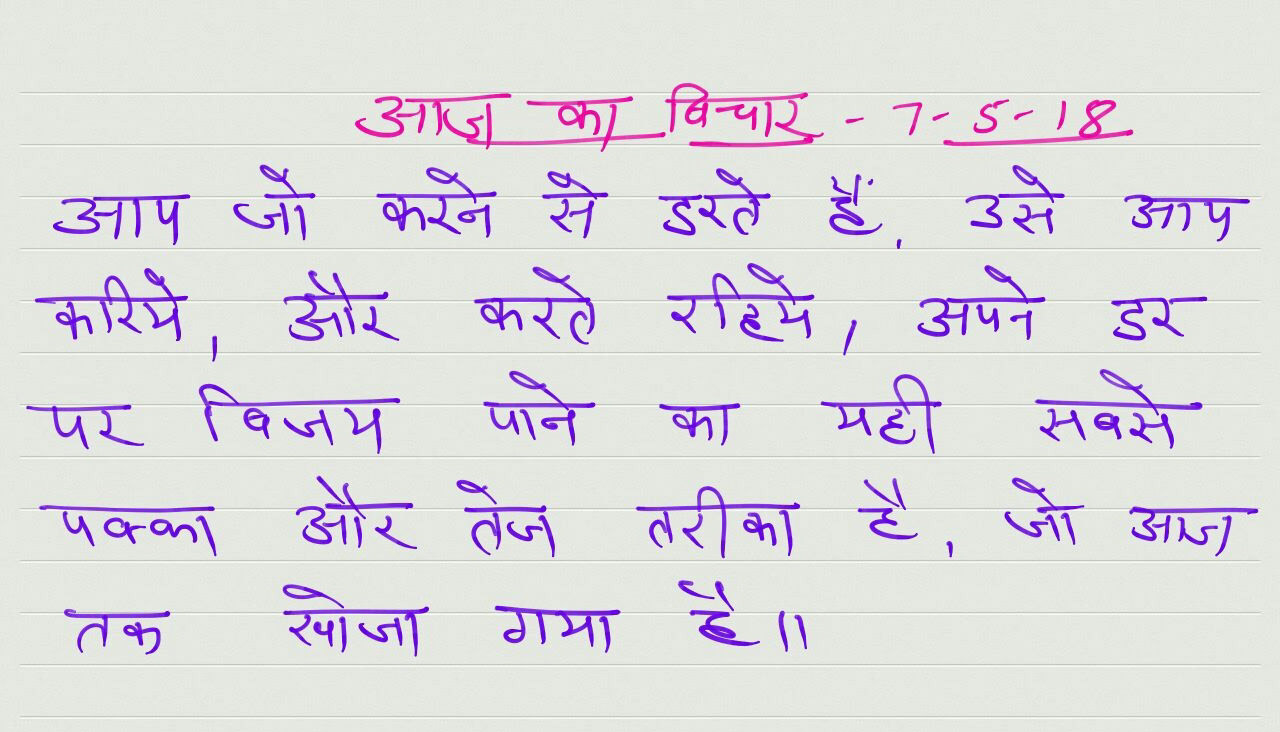 आज का विचार - 7-5-18
आप जो करने से डरते हैं, उसे आप
करिये, और करते रहिये, अपने डर
पर विजय पाने का यही सबसे
पक्का और तेज तरीका है, जो आज
तक खोजा गया है॥